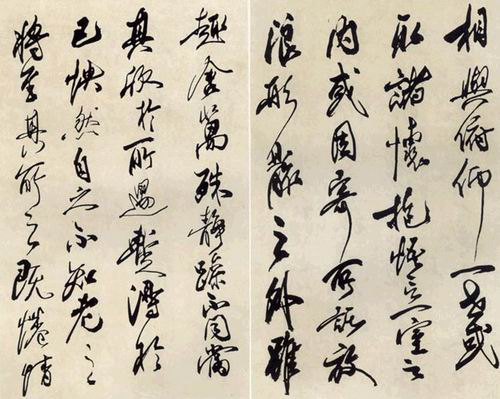 相與俯仰一世或
取諸懷抱悟言一室之
內或因寄所託放
浪形骸之外雖
趣舍萬殊靜躁不同當
其欣於所遇暫得於
己快然自足不知老之
將至及其所之既惓情